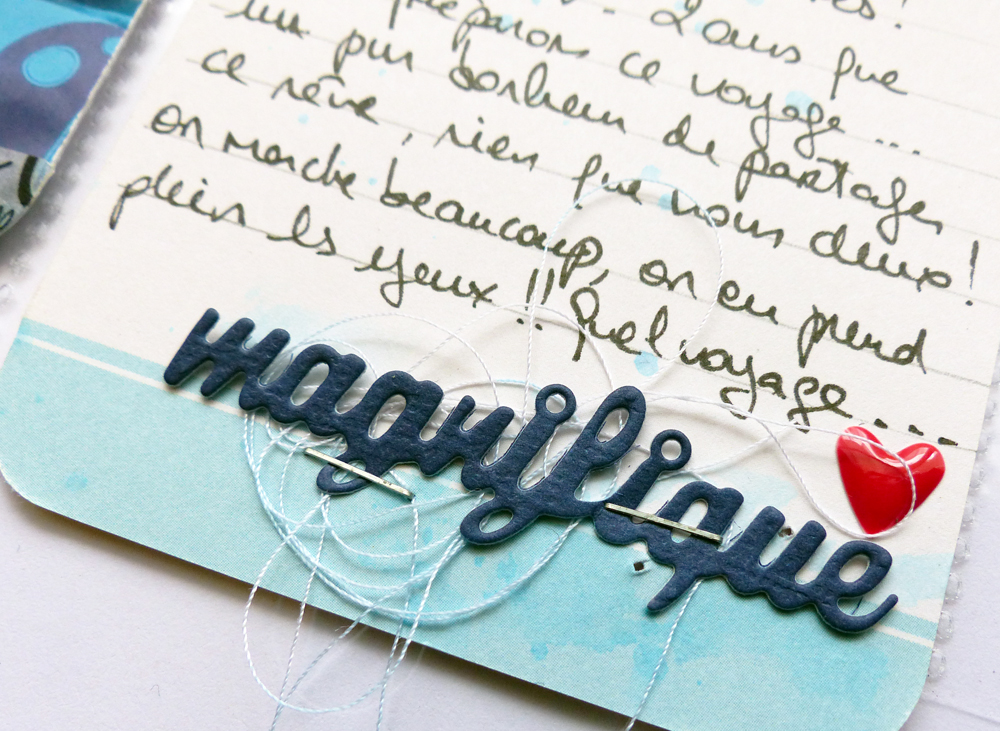 2 ans que
préparons ce voyage ...
un pur bonheur de partager
ce rêve, rien que nous deux !
on marche beaucoup, on en prend
plein les yeux !! Quel voyage ....
magnifique